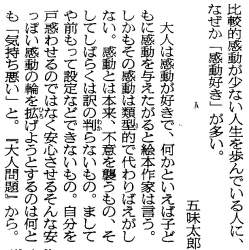 比較的感動が少ない人生を歩んでいる人に
なぜか「感動好き」が多い。
五味太郎
大人は感動が好きで、何かといえば子ど
もに感動を与えたがると絵本作家は言う。
しかもその感動は類型的で代わりばえがし
ない。感動とは本来、不意を襲うもの、そ
してしばらくは訳の判らないもの。まして
や前もって設定などできないもの。自分を
戸惑わせるのではなく安心させるそんな安
っぽい感動の輪を拡げようとするのは何と
も「気持ち悪い」と。『大人問題』から。